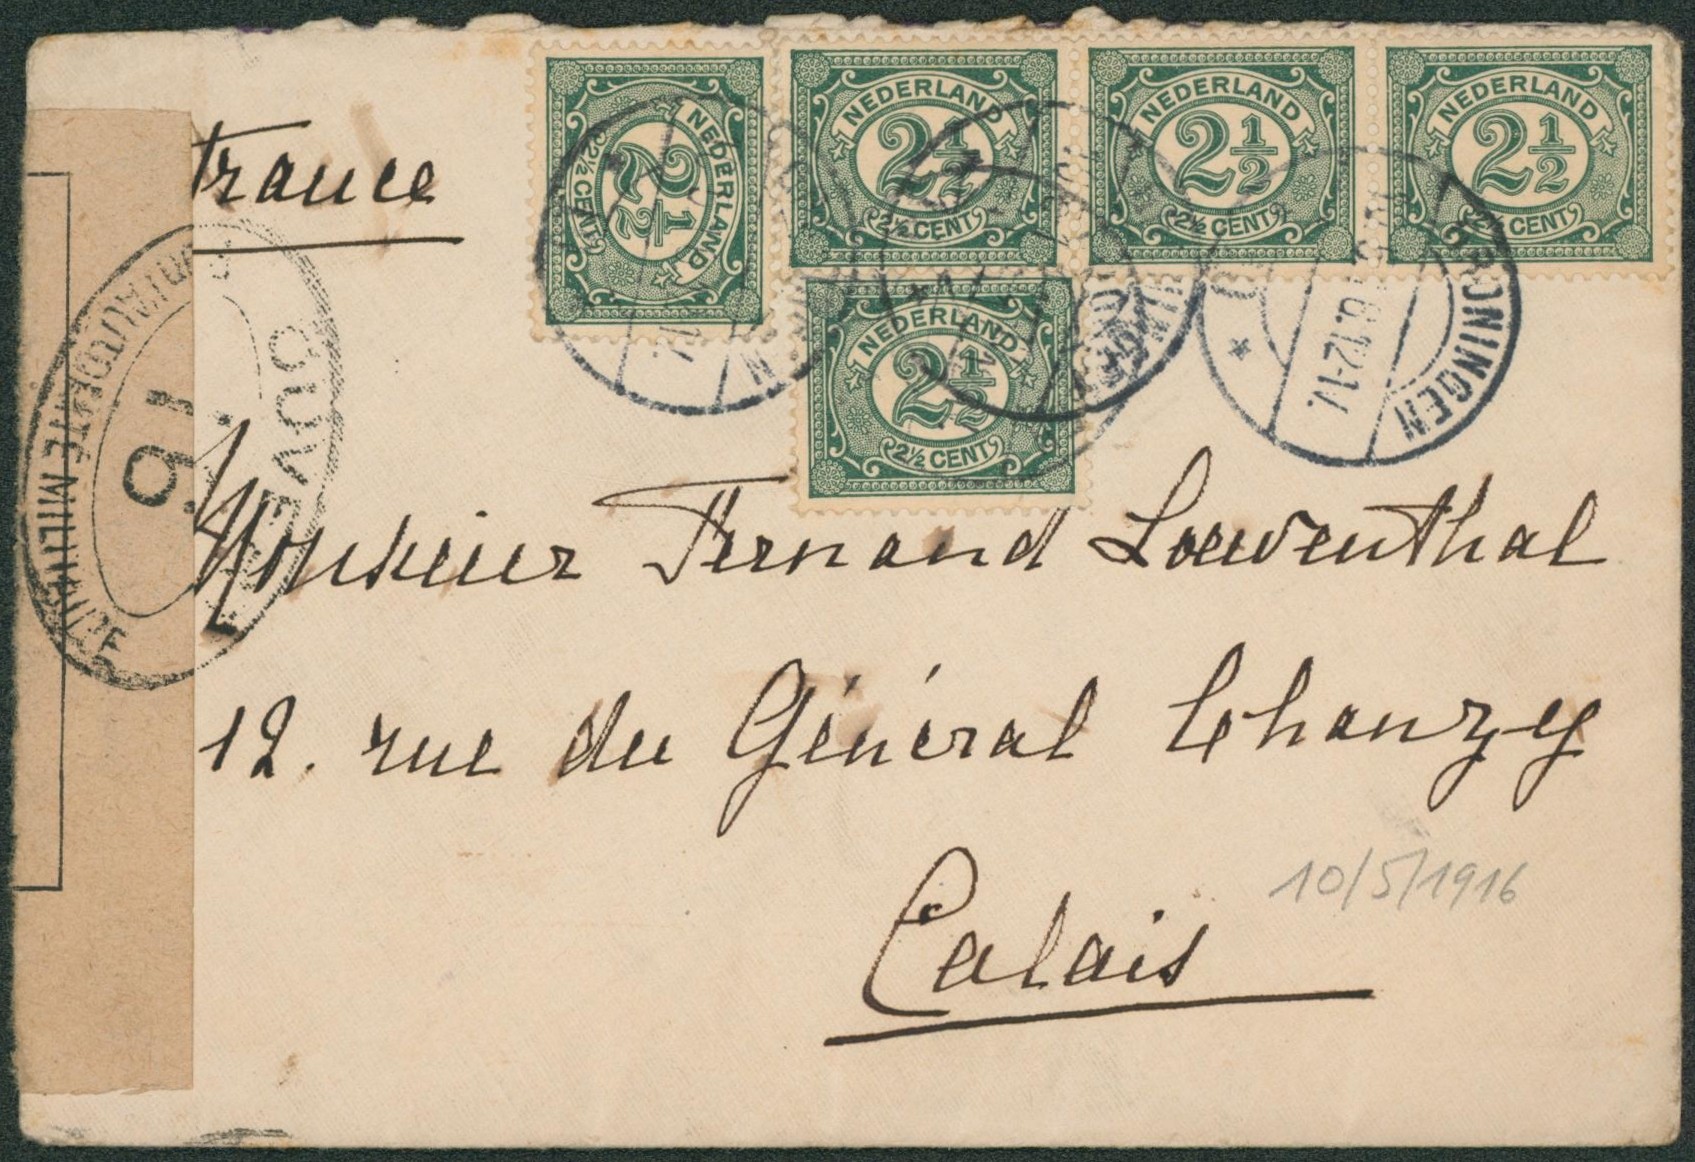 France
NEDERLAND
2½
2½ CENT
NEDERLAND
2½
2½ CENT
NEDERLAND
2½
2½ CENT
NEDERLAND
2½
2½ CENT
NEDERLAND
2½
2½ CENT
GRONINGEN
6.12-1V.
OUVERT
PAR L'AUTORITÉ MILITAIRE
16
Monsieur Fernand Loewenthal
12. rue du Général Chanzy
Calais
10/5/1916